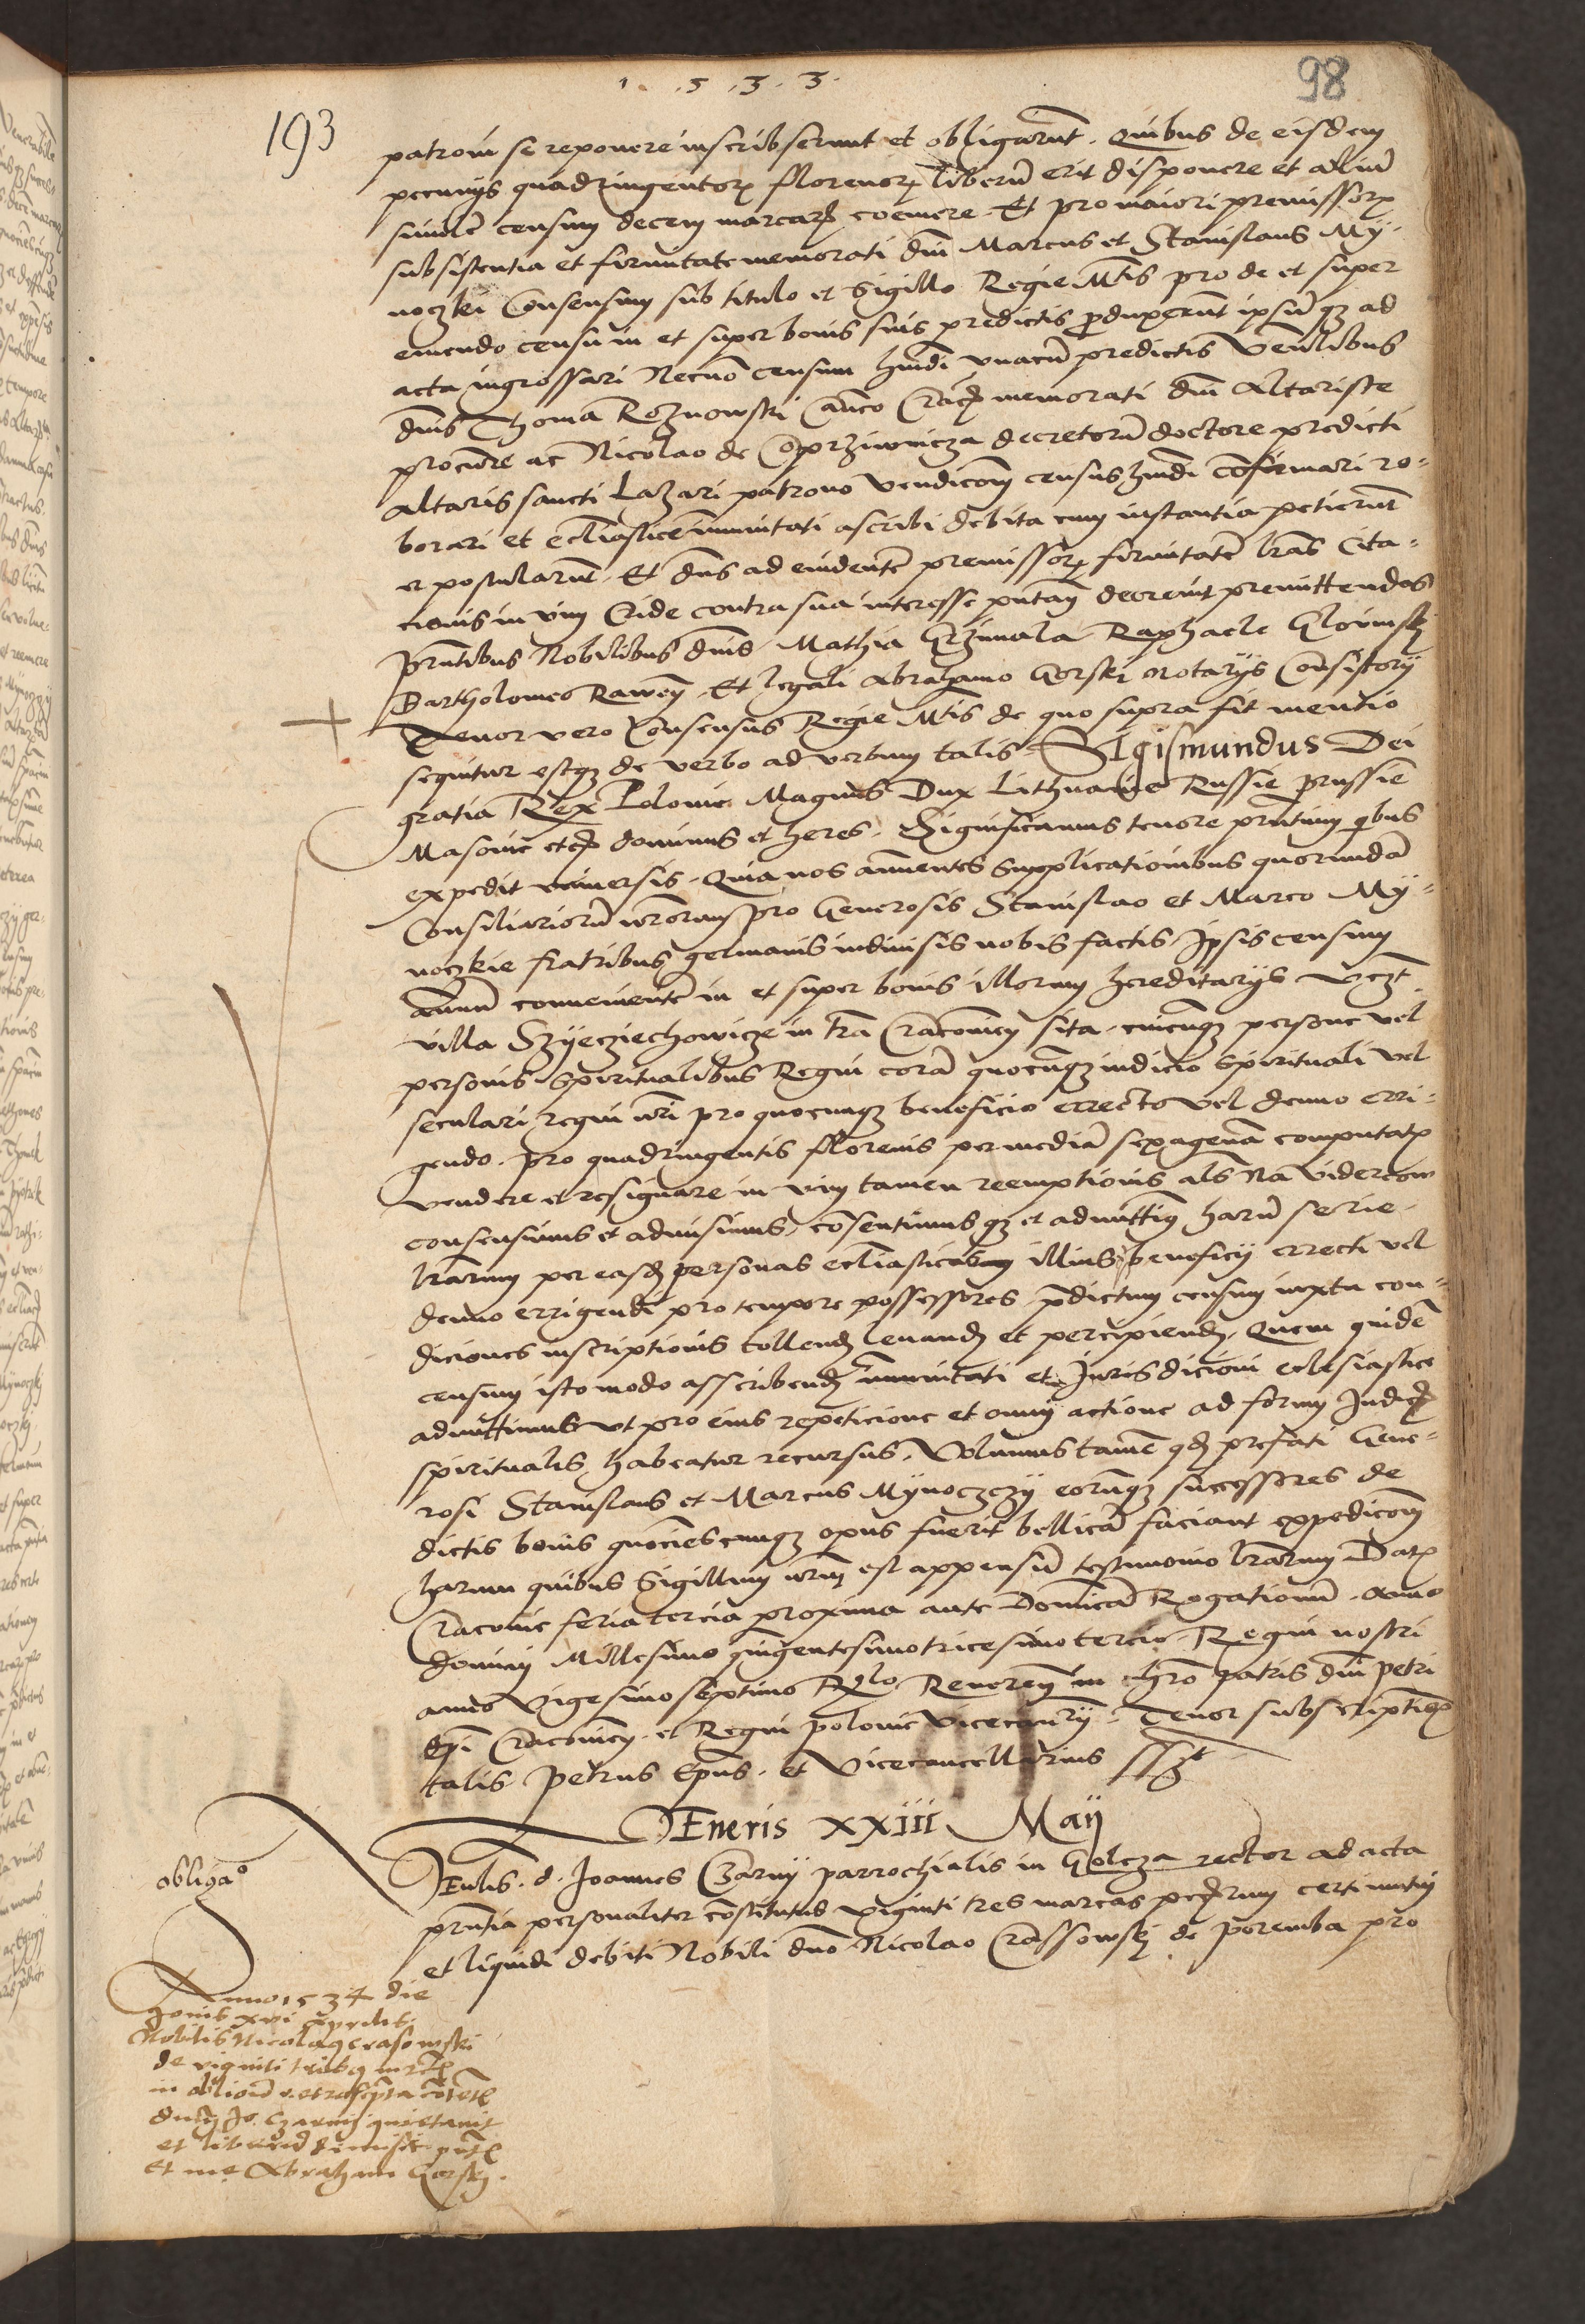 1 . 5 . 3 . 3 .
98
193
patroni se reponere inscribserunt et obligarunt. Quibus de eisdem
pecunys quadringentorum florenorum liberum erit disponere et alium
similem censum decem marcarum coemere. Et pro maiori premissorum
subsistentia et firmitate memorati dni Marcus et Stanislaus My-
noczki Consensum sub titulo et Sigillo Regie Mtis pro de et super
emendo censu in et super bonis suis predictis produxerunt ipsumqz ad
acta ingrossari Necno censum hmdi vnacum predictis Venlibus
dnis Thoma Roznowski Canco Crac memorati dni Altariste
procuratore ac Nicolao de Coprziwnicza decretorum doctore predicti
altaris sancti Lazari patrono vendicom census hmdi confirmari ro-
borari et eccliastice immunitati ascribi debita cum instantia petierunt
et postularunt. Et dns ad evidentem premissorum firmitatem lras Cita-
cionis in vim Cride contra sua interesse putan decrevit premittendas
Pntibus Nobilibus dnis Mathia Grzimala Raphaele Glovinsky
Bartholomeo Rawen. Et legali Abrahamo Gorski notarys Consistory
Tenor vero Consensus Regie Mtis de quo supra fit mentio
sequitur estqz de verbo ad verbum talis. Sigismundus Dei
gratia Rex Polonie Magnus Dux Lithuanie Russie prussie
Masovie etc dominus et heres. Significamus tenore pntium qbus
expedit universis. Quia nos annuentes supplicationibus quorundam
Consiliariorum nrorum pro Generosis Stanislao et Marco My-
noczkie fratribus germanis indivisis nobis factis Ipsis censum
annuum convenientem in et super bonis illorum hereditarys vczt
villa Szyecziechowicze in tra Cracovien sita. cuicunqz persone vel
personis spiritualibus Regni coram quocunqz iudicio spirituali vel
seculari regni nri pro quocumqz beneficio errecto vel denuo erri-
gendo. pro quadringentis florenis per mediam sexagenam computatis
vendere et resignare in vim tamen reemptionis als Na Vidercow
consensimus et admisimus, consentimus qz et admittimus harum serie
lrarum per easdem personas eccliasticas illius beneficy errecti vel
denuo errigendi pro tempore possessores predictum censum iuxta con-
diciones inscriptionis tollend levand et percipiend. Quem quidem
censum isto modo asscribend immunitati et Jurisdicioni ecclesiastice
admittimus vt pro eius repeticione et omni actione ad forum Judicy
spiritualis habeatur recursus. Volumus tamen qd prefati Gene-
rosi Stanislaus et Marcus Mynoczczy eorumqz successores de
dictis bonis quocienscumqz opus fuerit bellicam faciant expedicom
harum quibus Sigillum nrum est appensum testimonio lrarum Datum
Cracovie feria tercia proxima ante Dominicam Rogationum. Anno
domini Millesimo quingentesimo tricesimo tercio Regni nostri
anno vigesimo septimo Rlo Reveren in chro patris dni Petri
Epi Cracovien. et Regni polonie vicecancry. Tenor subscriptionis
talis Petrus Epus. et Vicecancellarius sszt
VEneris xxiii Maij
obliga°
VEnlis. d. Joannes Czarny parrochialis in Golcza rector ad acta
pntia personaliter constitutus viginti tres marcas pecuniarum certi mutui
et liquidi debiti Nobili dno Nicolao Crassowsky de poremba pro
Anno 1534 die
Jouis xvi Aprilis.
Nobilis Nicolaus Crasowski
de viginti tribus mrcis
in obligacione retroscripta contentis
dnum Jo. Czarnij quietavit
et liberum dimisit pntibus
Et me Abraham Gorsky.